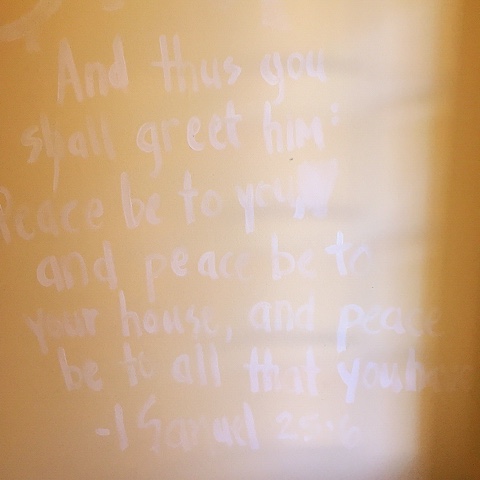 And thus you
shall greet him:
Peace be to you,
and peace be to
your house, and peace
be to all that you have
-1 Samuel 25:6